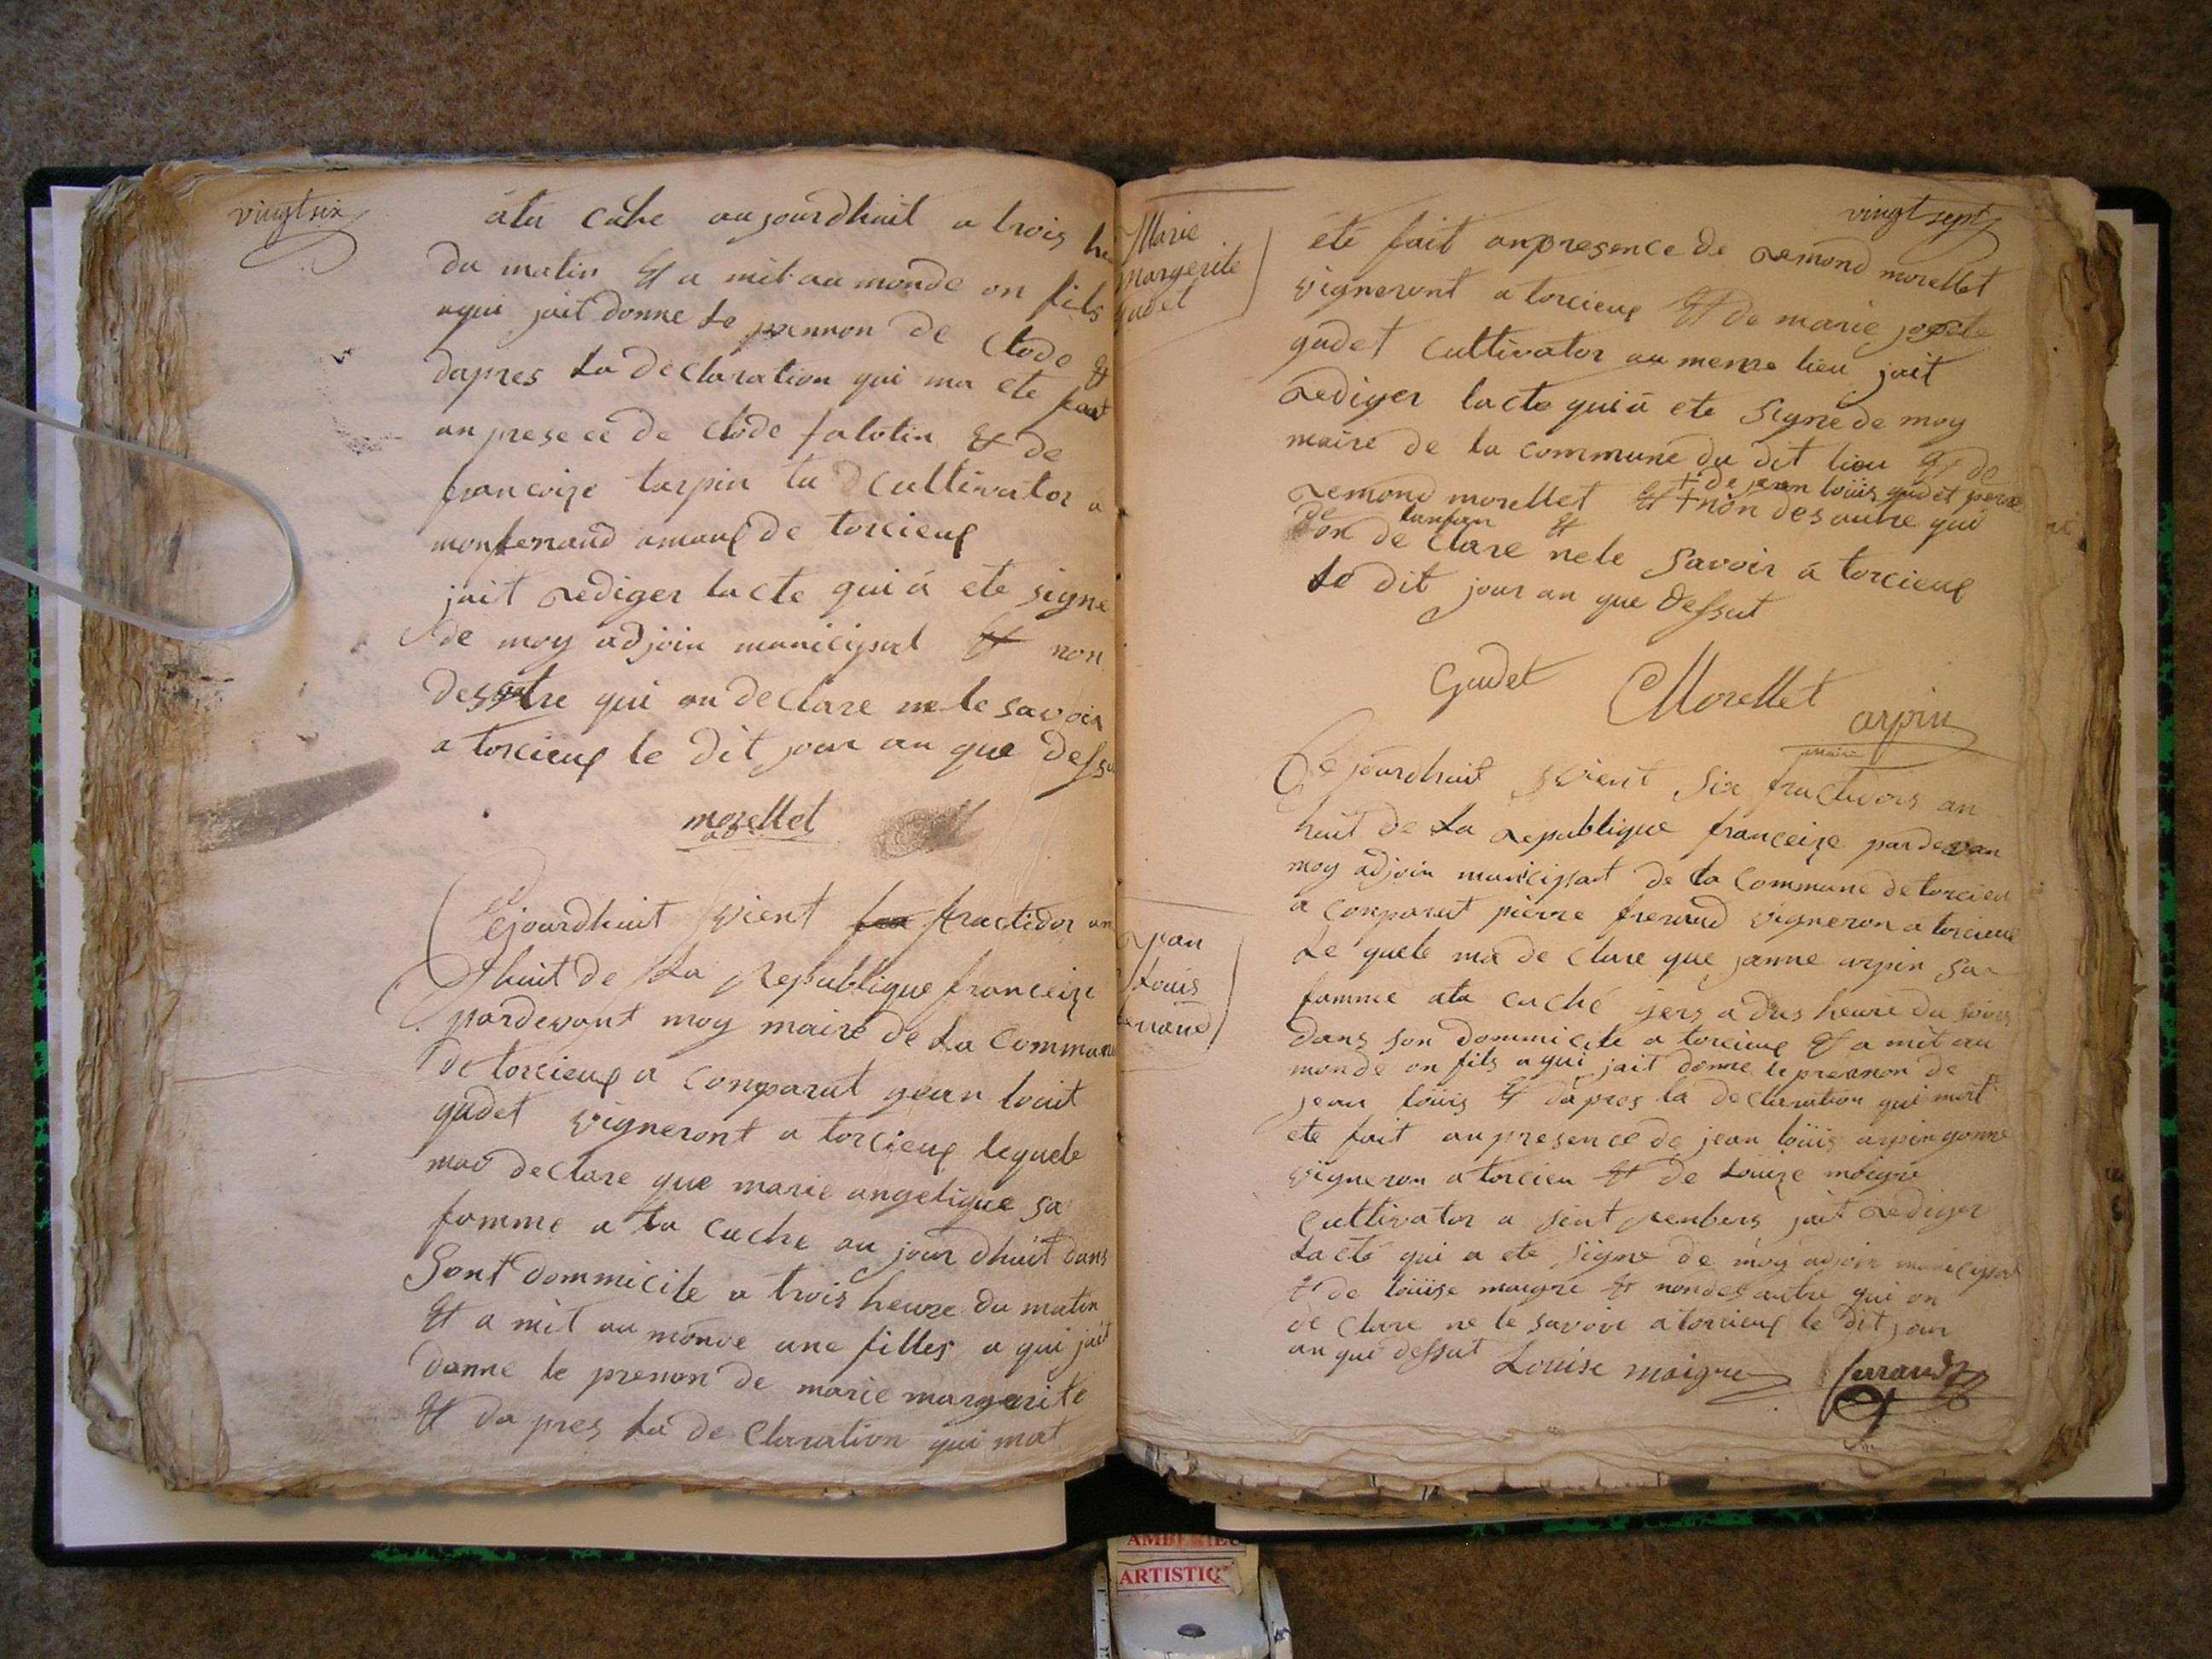 vingt six
a la cahe aujourdhuit a trois
du matin Et a mit au monde on fils
aqui jait donne Le prennon de Clode Et
dapres La declaration qui ma ete fait
an presece de Clode falotin Et de
francoize tarpin la Cultivator a
monferrand amauf de torcieuf
jait Rediger lacte qui á ete signe
de moy adjoin municipal Et non
des autre qui on declare ne le savoir
a torcieuf le dit jour an que dessu
morellet
ad
Cejourdhuit vient fractidor an
huit de La Republique franceize
pardevant moy maire de La Commune
de torcieuf a Comparut gean louit
gudet vigneront a torcieuf lequele
ma declare que marie angelique sa
famme a la cuche au jour dhuit dans
Sont dommicile a trois heure du matin
Et a mit au monde une filles a qui jait
donne le prenon de marie margerite
Et da pres La de Claration qui mat
vingt sept
Marie
Margerite
gudet
été fait anpresence de Remond morellet
vigneront a torcieuf Et de marie
gudet Cultivator au meme lieu jait
Rediger lacte qui á ete Signe de moy
maire de la Commune du dit lieu Et de
+ de jean loüis gudet pere
Remond morellet Et + non des autre qui
de lanfan Et
on de Clare ne le Savoir á torcieuf
Le dit jour an que dessut
Gudet Morellet arpin
maire
Cejourdhuit vient Six fructidors an
huit de La Republique franceize pardevan
moy adjoin municipal de la Commune de torcieu
a Conparut pierre frerand vigneron a torcieuf
Le quele ma de Clare que janne arpin sa
famme a la cuché jers a dus heure du soirs
dans son dommicile a torcieuf Et a mit au
monde on fils a qui jait donne le prennon de
jean loüis Et dapres la declaration qui mat
ete fait anpresence de jean loüis arpin
vigneron a torcieu Et de Loüize maigre
Cultivator a sint jait Rediger
Lacte qui a ete signe de moy adjoin municipal
Et de loüise maigre Et non des autre qui on
de Clare ne le savoir a torcieuf le dit jour
an que dessut Louise maigre ferrand
Jean
Louis
ferrand
AMBERIEU
ARTISTIQ